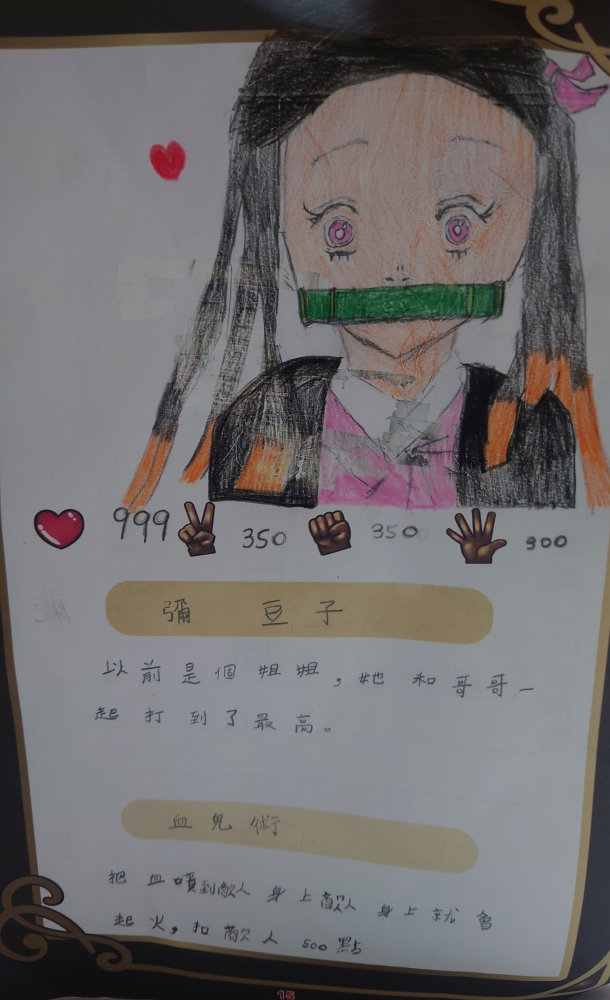 999 350 350 300
彌豆子
以前是個姐姐，她和哥哥一
起打到了最高。
血鬼術
把血噴到敵人身上敵人身上就會
起火，扣敵人500點
15